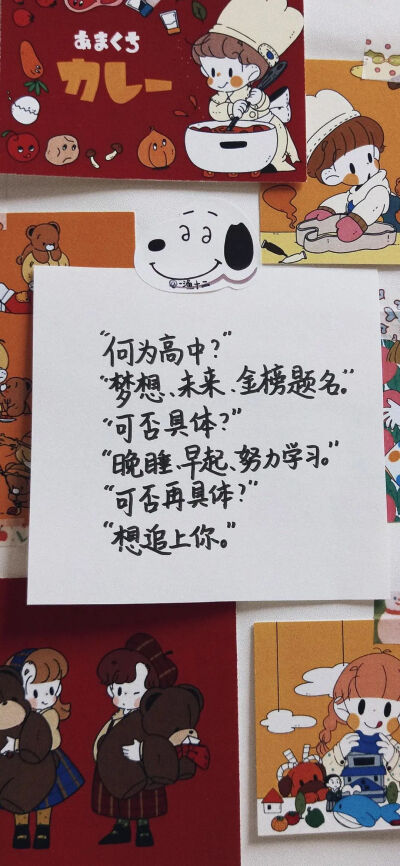 あまくち
カレー
"何为高中?"
"梦想、未来、金榜题名。"
"可否具体?"
"晚睡、早起、努力学习。"
"可否再具体?"
"想追上你。"